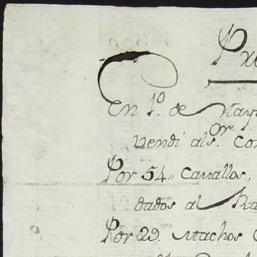 En 1º. de Mayo
vendi al Sºʳ. Con
Por 54„ Cavallos,
dados al
Por 29. Machos